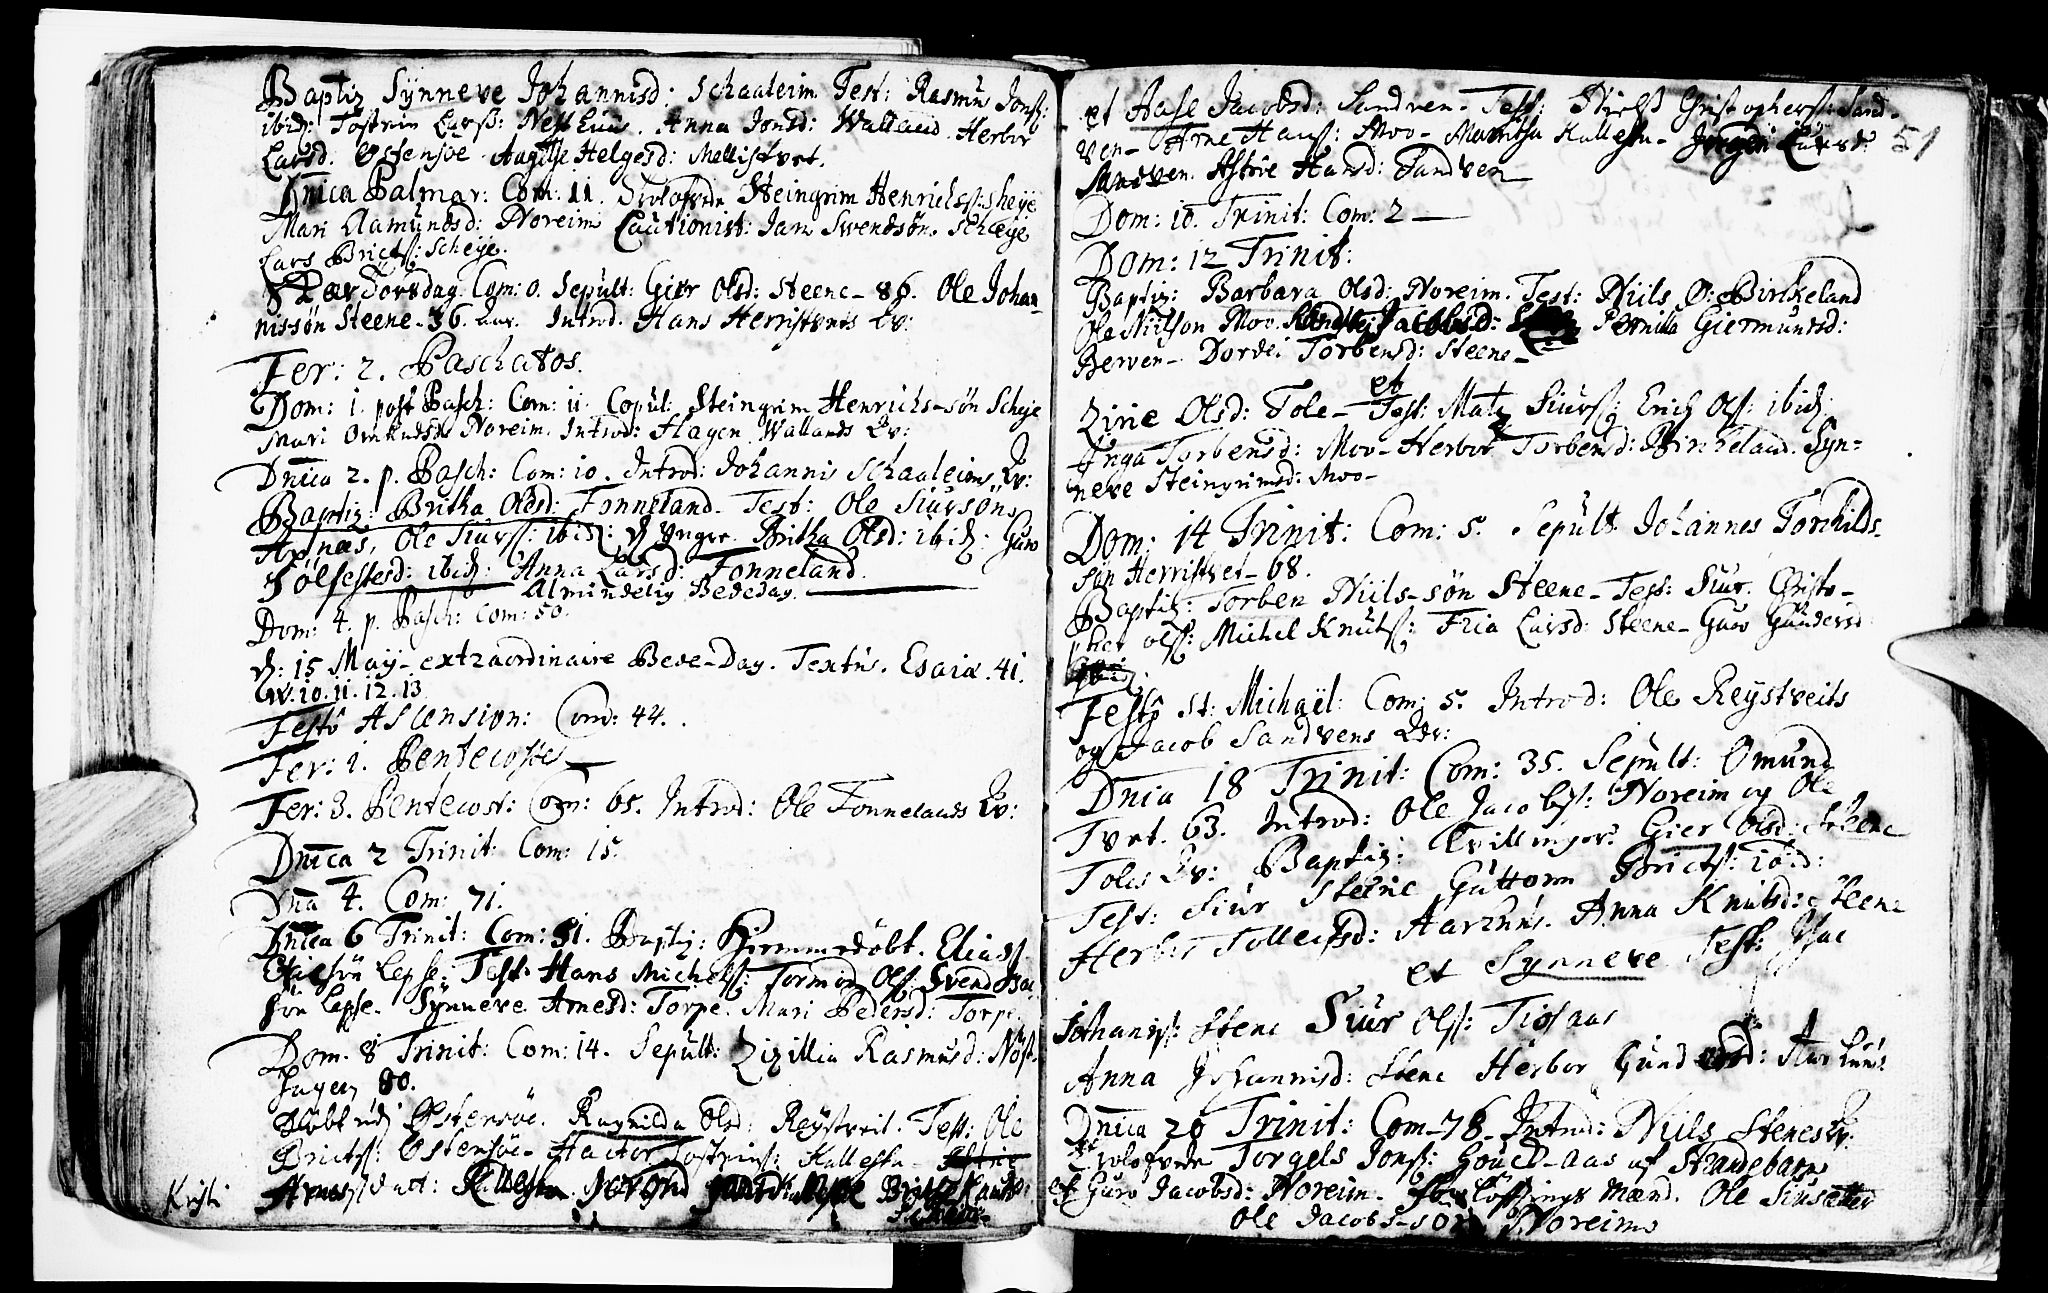 Baptiz Synneve Johannisd: Schaaleim Test: Rasmus Jonss:
ibid: Tostein Larss: Nesthuus. Anna Jonsd: Walland. Herbor
Larsd: Østensøe. Aagøtje Helgesd: Mellistvet.
Dnica Palmar: Com: 11. Trolofvede Steingrim Henrichss: Scheye
Mari Aamundsd: Noreim Cautionist: Jam Swendsøn Scheye
Lars Brictss: Scheye.
Skærtorsdag. Com: 0. Sepult: Gier Olsd: Steene - 86. Ole Johan-
nissøn Steene - 36. aar. Introd. Hans Herristvets Qv:
Fer: 2. Paschatos.
Dom: 1. post Pasch: Com: 11. Copul: Steingrim Henrichs-søn Scheye
Mari Omundsd: Noreim. Introd: Hagen Wallands Qv:
Dnica 2. p. Pasch: Com: 10. Introd: Johannis Schaaleims Qv:
Baptiz: Britha Olsd: Fonneland. Test: Ole Siursøn
Axnæs, Ole Siurss: ibid: d Yngre. Britha Olsd: ibid: Guro
Sølfestesd: ibid: Anna Larsd: Fonneland.
Almindelig Bededag.
Dom: 4. p. Pasch: Com: 50.
d: 15 Maij - extraordinaire Bede-Dag. Textus. Esaiæ. 41.
vv. 10. 11. 12. 13.
Festo Ascension: Com: 44.
Fer: 1. Pentecostes
Fer: 3. Pentecost: Com: 65. Introd: Ole Fonnelands Qv:
Dnica 2 Trinit: Com: 15.
Dnica 4. Com: 71.
Dnica 6 Trinit: Com: 51. Baptiz: Hiemmedøbt. Elias
søn Lepse. Test: Hans Michelss: Tormod Olss: Svend
søn Lepse. Synneve Arnesd: Torpe. Mari Pedersd: Torpe
Dom. 8 Trinit: Com: 14. Sepult: Zizillia Rasmusd: Nøst-
hagen 80.
Døbt udj Østensøe. Ragnilda Olsd: Reystveit. Test: Ole
Brictss: Østensøe - Hactor Tostenss: Kallestu -
Kristi
et Aase Jacobsd: Sandven - Test: Christophers: Sand-
ven - Arne Hanss: Moo - Maritha Kallestu - Larsd: 51
Sandven. Astrie Hansd: Sandven
Dom: 10. Trinit: Com: 2
Dom: 12 Trinit:
Baptiz: Barbara Olsd: Noreim. Test: Niils O: Birkeland
Ole Niilson Moo. Pernilla Giermundsd:
Berven - Dordei Torbensd: Steene
et
Zirie Olsd: Tole - Test: Matz Siurss: Erich Olss: ibid:
Inga Torbensd: Moo - Herbor Torbensd: Birkeland. Syn-
neve Steingrimsd: Moo -
Dom: 14 Trinit: Com: 5. Sepult Johannes Torchilds-
søn Herristvet - 68.
Baptiz: Torben Niils-søn Steene - Test: Siur Christo-
pher Olss: Michel Knutss: Zria Larsd: Steene - Guro Gundersd
ibid:
Festo St: Michaël: Com: 5. Introd: Ole Reystveits
og Jacob Sandvens Qv:
Dnica 18 Trinit: Com: 35. Sepult: Omund
Tvet. 63. Introd: Ole Jacobss: Noreim og Ole
Toles Qv: Baptiz: Tvillinger. Gier Olsd: Steene
Test: Siur Steene Guttorm Brictss: ibid:
Herbor Tolleifsd: Aarhuus. Anna Knutsd: Steene
et Synneve Test: Isac
Johaniss: Stene Siur Olss: Tiosaas
Anna Johannisd: Steene Herbor Gundersd: Aarhuus
Dnica 20 Trinit: Com - 78 - Introd: Niils Stenes Qv:
Trolofvede Torgels Jonss: -aas af Strandebarm
et Guro Jacobsd: Noreim - Forløftnings Mænd. Ole
Ole Jacobs-søn Noreim